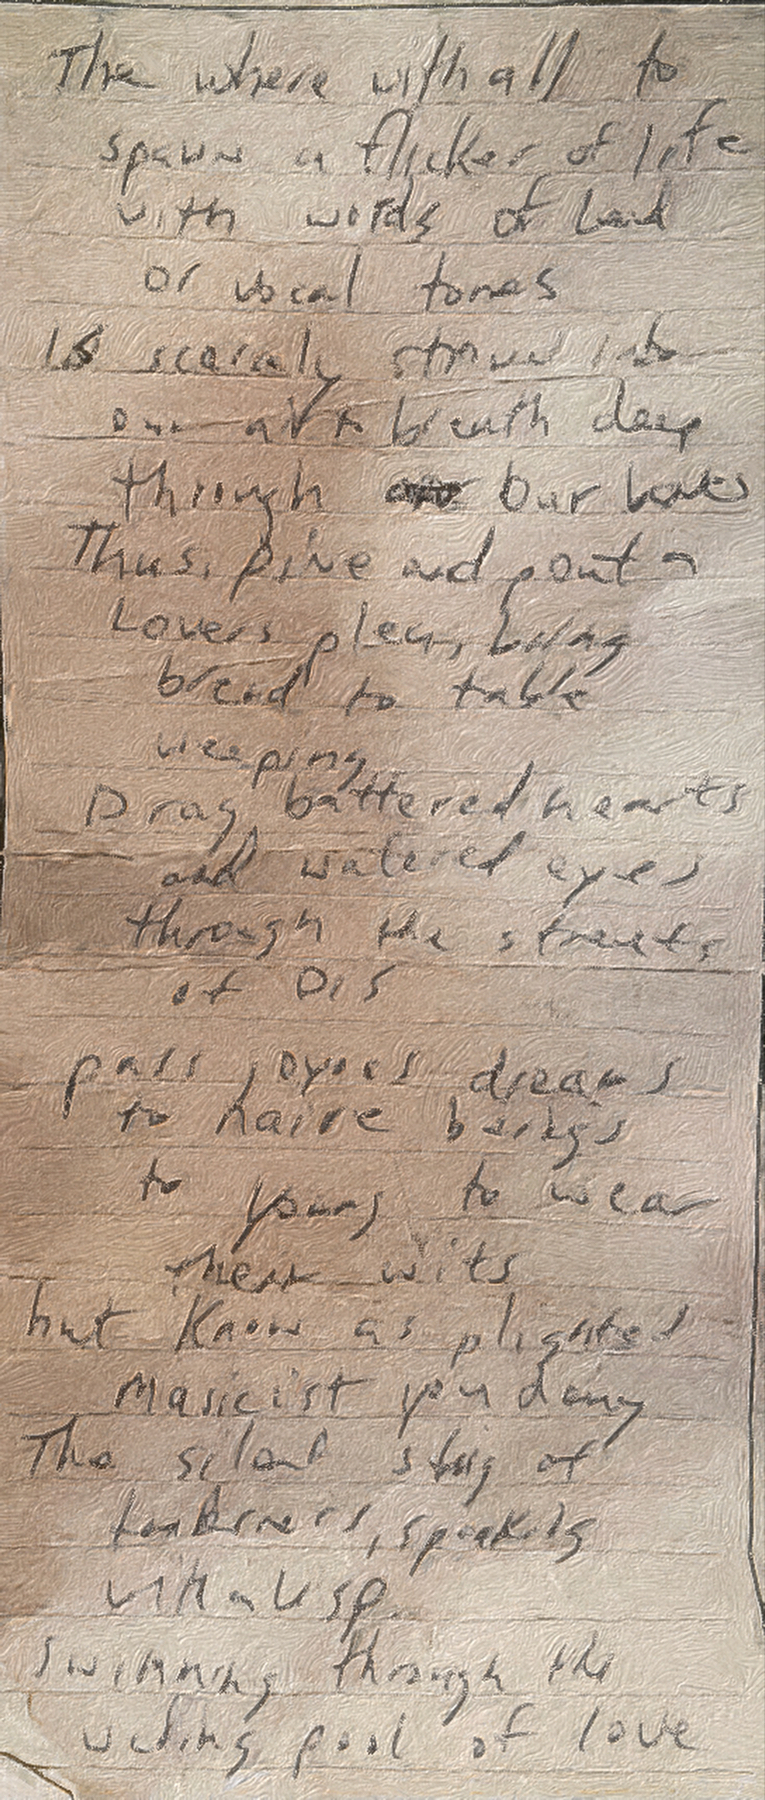 The where with all to
spawn a flicker of life
with words of hand
or vocal tones
Is scarcely strewn into
our air to breath deep
through our
Thus, pine and pout a
Lovers plea, bring
bread to table
weeping
Drag battered hearts
and watered eyes
through the streets
of Dis
pass joyous dreams
to naive beings
to young to wear
their wits
but know as plighted
Masicist you deny
The silent sting of
tenderness, speaking
with a lisp
swimming through the
wading pool of love